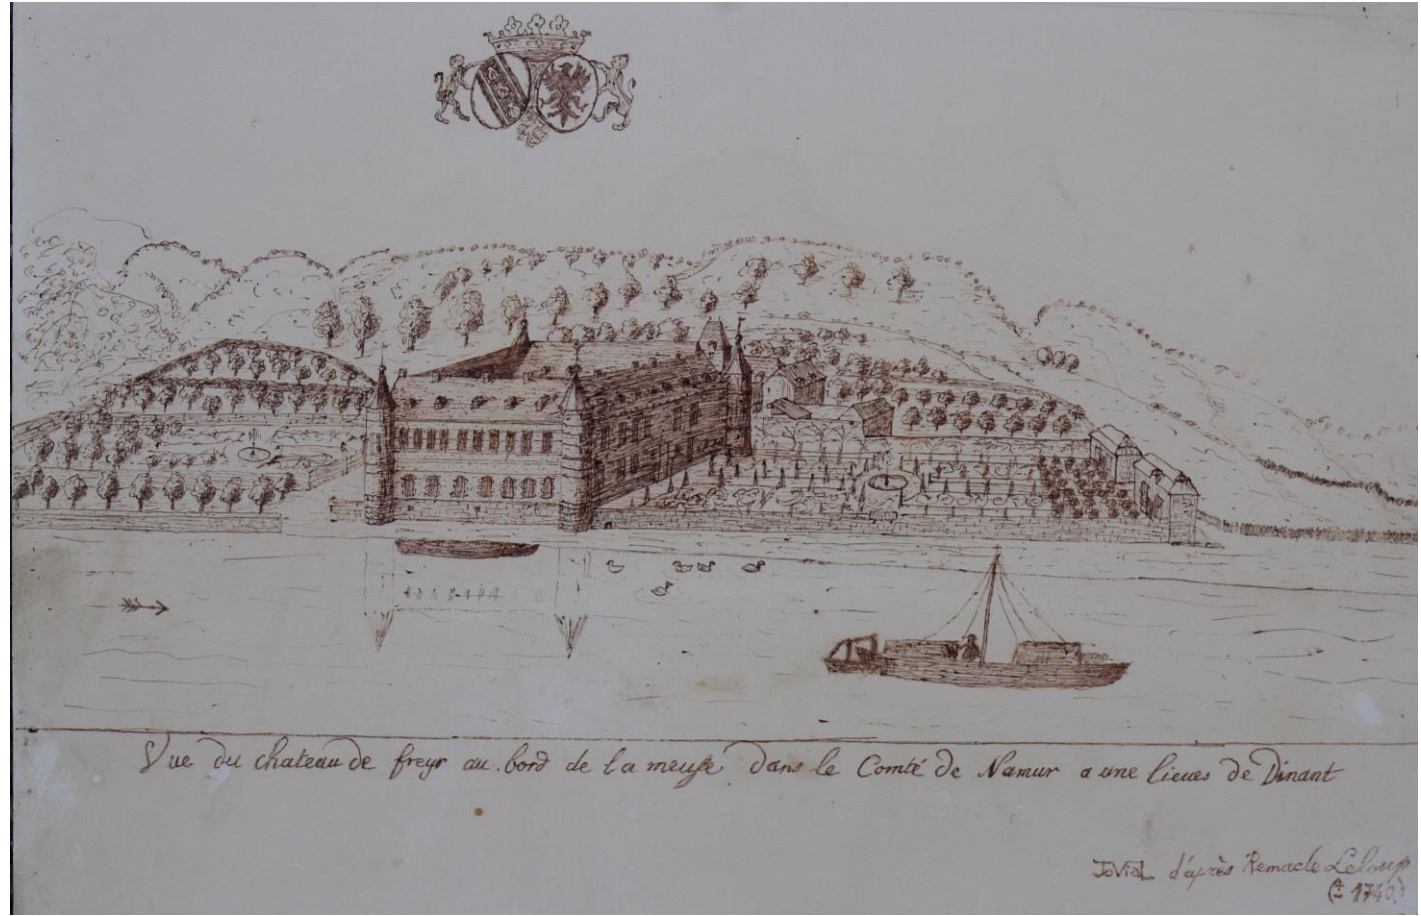 Vue du chateau de freyr au bord de la meuse dans le Comté de Namur a une lieues de Dinant
JoViaL d'après Remacle Leloup
(± 1740)